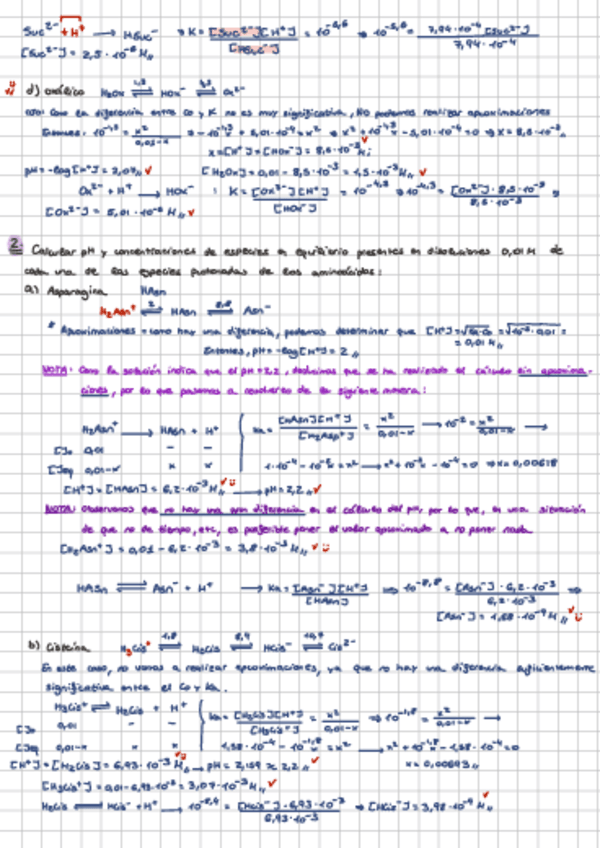 Suc²⁻ + H⁺ → HSuc⁻ → K = [Suc²⁻][H⁺] / [HSuc⁻] = 10⁻⁵,⁶ → 10⁻⁵,⁶ = 7,94·10⁻⁴ [Suc²⁻] / 7,94·10⁻⁴
[Suc²⁻] = 2,5·10⁻⁶ M
d) oxálico H₂Ox ⇌ HOx⁻ ⇌ Ox²⁻
Como la diferencia entre Co y K no es muy significativa, No podemos realizar aproximaciones
Entonces: = x² / 0,01-x
x = [H⁺] = [HOx⁻] = 8,5·10⁻³ M
pH = -log [H⁺] = 2,07 [H₂Ox] = 0,01 - 8,5·10⁻³ = 1,5·10⁻³ M
Ox²⁻ + H⁺ → HOx⁻ : K = [Ox²⁻][H⁺] / [HOx⁻] = 10⁻⁴,³ → 10⁻⁴,³ = [Ox²⁻]·8,5·10⁻³ / 8,5·10⁻³
[Ox²⁻] = 5,01·10⁻⁵ M
2. Calcular pH y concentraciones de especies en equilibrio presentes en disoluciones 0,01 M de
cada una de las especies protonadas de los aminoácidos:
a) Asparagina HAsn
H₂Asn⁺ ⇌ HAsn ⇌ Asn⁻
* Aproximaciones = como hay una diferencia, podemos determinar que [H⁺] = √Ka·Co = √10⁻²·0,01 =
= 0,01 M
Entonces, pH = -log [H⁺] = 2
NOTA: Como la solución indica que el pH = 2,2, deducimos que se ha realizado el cálculo sin aproxima-
ciones, por lo que pasamos a resolverlo de la siguiente manera:
H₂Asn⁺ → HAsn + H⁺ Ka = [HAsn][H⁺] / [H₂Asn⁺] = x² / 0,01-x → 10⁻² = x² / 0,01-x →
[]o 0,01 - -
[]eq 0,01-x x x 1·10⁻⁴ - 10⁻²x = x² → x² + 10⁻²x - 10⁻⁴ = 0 → x = 0,00618
[H⁺] = [HAsn] = 6,2·10⁻³ M → pH = 2,2
NOTA: Observamos que no hay una gran diferencia en el cálculo del pH, por lo que, en una situación
de que no de tiempo, etc, es preferible poner el valor aproximado a no poner nada.
[H₂Asn⁺] = 0,01 - 6,2·10⁻³ = 3,8·10⁻³ M
HAsn ⇌ Asn⁻ + H⁺ → Ka = [Asn⁻][H⁺] / [HAsn] → 10⁻⁸,⁸ = [Asn⁻]·6,2·10⁻³ / 6,2·10⁻³ →
[Asn⁻] = 1,58·10⁻⁹ M
b) Cisteína H₃Cis⁺ ⇌ H₂Cis ⇌ HCis⁻ ⇌ Cis²⁻
En este caso, no vamos a realizar aproximaciones, ya que no hay una diferencia suficientemente
significativa entre el Co y Ka.
H₃Cis⁺ ⇌ H₂Cis + H⁺ Ka = [H₂Cis][H⁺] / [H₃Cis⁺] = x² / 0,01-x → 10⁻¹,⁸ = x² / 0,01-x →
[]o 0,01 - -
[]eq 0,01-x x x 1,58·10⁻⁴ - 10⁻¹,⁸x = x² → x² + 10⁻¹,⁸x - 1,58·10⁻⁴ = 0
[H⁺] = [H₂Cis] = 6,93·10⁻³ M → pH = 2,159 ≈ 2,2 x = 0,00693
[H₃Cis⁺] = 0,01 - 6,93·10⁻³ = 3,07·10⁻³ M
H₂Cis ⇌ HCis⁻ + H⁺ → 10⁻⁸,⁴ = [HCis⁻]·6,93·10⁻³ / 6,93·10⁻³ → [HCis⁻] = 3,98·10⁻⁹ M